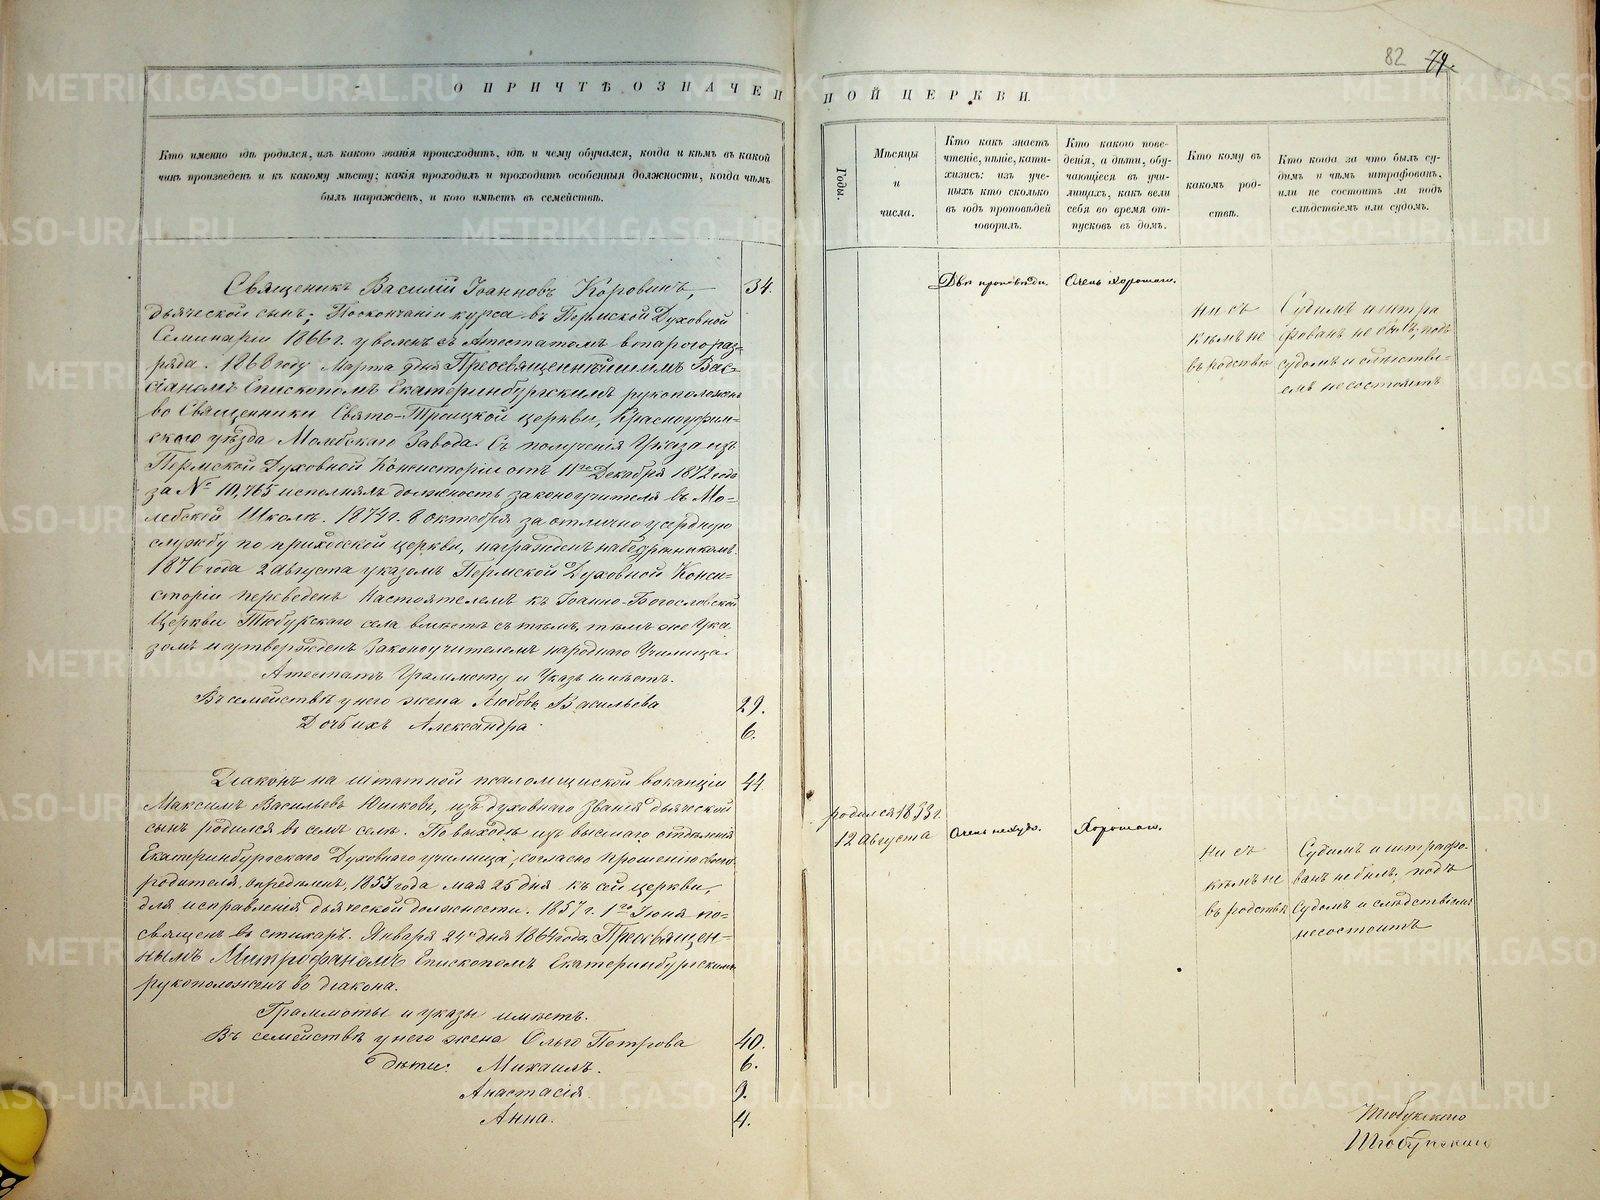 82 74.
О ПРИЧТѢ ОЗНАЧЕННОЙ ЦЕРКВИ.
Кто именно гдѣ родился, изъ какого званія происходитъ, гдѣ и чему обучался, когда и кѣмъ въ какой
чинъ произведенъ и къ какому мѣсту; какія проходилъ и проходитъ особенныя должности, когда чѣмъ
былъ награжденъ, и кого имѣетъ въ семействѣ.
Священникъ Василій Іоанновъ Коровинъ, 34.
дьяческой сынъ; По окончаніи курса въ Пермской Духовной
Семинаріи 1866 г. уволенъ съ Атестатомъ втораго раз-
ряда. 1868 году Марта дня Преосвященнѣйшимъ Вас-
сіаномъ Епископомъ Екатеринбургскимъ рукоположенъ
во Священники Свято-Троицкой церкви, Красноуфим-
скаго уѣзда Молебскаго Завода. Съ полученія Указа изъ
Пермской Духовной Консисторіи отъ 11го Декабря 1872 года
за № 10,765 исполнялъ должность законоучителя въ Мо-
лебской Школѣ. 1874 г. 8 октября за отлично усердную
службу по приходской церкви, награжденъ набедренникомъ.
1876 года 2 августа указомъ Пермской Духовной Конси-
сторіи переведенъ Настоятелемъ къ Іоанно-Богословской
Церкви Тюбукскаго села вмѣстѣ съ тѣмъ, тѣмъ же Ука-
зомъ и утвержденъ Законоучителемъ народнаго Училища.
Атестатъ Граммоту и Указъ имѣетъ.
Въ семействѣ у него жена Любовь Васильева 29.
Дочь ихъ Александра 6.
Діаконъ на штатной псаломщиской вокансіи 44
Максимъ Васильевъ Юшковъ, изъ духовнаго Званія дьяческой
сынъ родился въ семъ селѣ. По выходѣ изъ высшаго отдѣленія
Екатеринбургскаго Духовнаго училища, согласно прошенію своего
родителя, опредѣленъ, 1853 года мая 25 дня къ сей церкви,
для исправленія дьяческой должности. 1857 г. 1го Іюня по-
священъ въ стихарь. Января 24 дня 1864 года, Преосвящен-
нымъ Митрофаномъ Епископомъ Екатеринбургскимъ
рукоположенъ во діакона.
Граммоты и указы имѣетъ.
Въ семействѣ у него жена Ольга Петрова 40.
Дѣти: Михаилъ. 6.
Анастасія. 9.
Анна. 4.
Годы.
Мѣсяцы
и
числа.
Кто какъ знаетъ
чтеніе, пѣніе, кати-
хизисъ: изъ уче-
ныхъ кто сколько
въ годъ проповѣдей
говорилъ.
Кто какого пове-
денія, а дѣти, обу-
чающіеся въ учи-
лищахъ, какъ вели
себя во время от-
пусковъ въ домъ.
Кто кому въ
какомъ род-
ствѣ.
Кто когда за что былъ су-
димъ и чѣмъ штрафованъ,
или не состоитъ ли подъ
слѣдствіемъ или судомъ.
Двѣ проповѣди.
Очень хорошаго.
ни съ
кѣмъ не
въ родствѣ
Судимъ и штра
фованъ не былъ, подъ
судомъ и слѣдстві-
емъ не состоитъ
родился 1833 г.
12 Августа
Очень не худо.
Хорошаго.
ни съ
кѣмъ не
въ родствѣ
Судимъ и штрафо-
ванъ не былъ, подъ
Судомъ и слѣдствіемъ
не состоитъ
Тюбукского
Тюбукского
METRIKI.GASO-URAL.RU